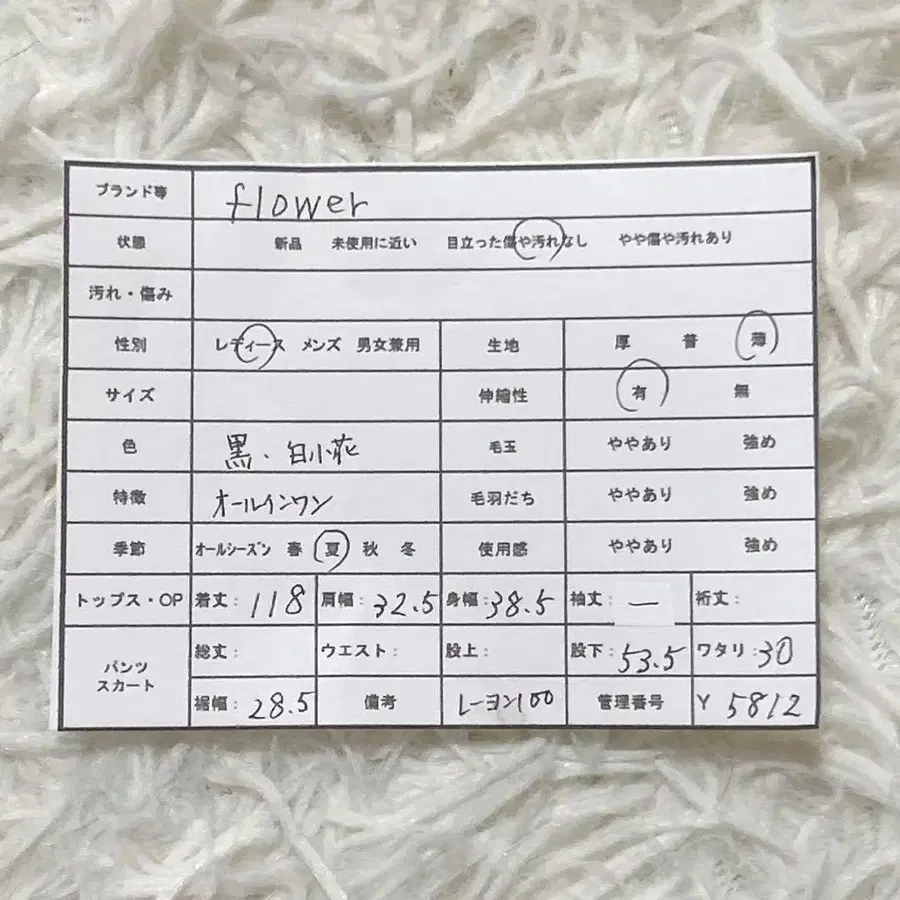 ブランド等 flower
状態 新品 未使用に近い 目立った傷や汚れなし やや傷や汚れあり
汚れ・傷み
性別 レディース メンズ 男女兼用 生地 厚 普 薄
サイズ 伸縮性 有 無
色 黒・白小花 毛玉 ややあり 強め
特徴 オールインワン 毛羽だち ややあり 強め
季節 オールシーズン 春 夏 秋 冬 使用感 ややあり 強め
トップス・OP 着丈: 118 肩幅: 32.5 身幅: 38.5 袖丈: ― 裄丈:
パンツ スカート 総丈: ウエスト: 股上: 股下: 53.5 ワタリ: 30
裾幅: 28.5 備考 レーヨン100 管理番号 Y 5812